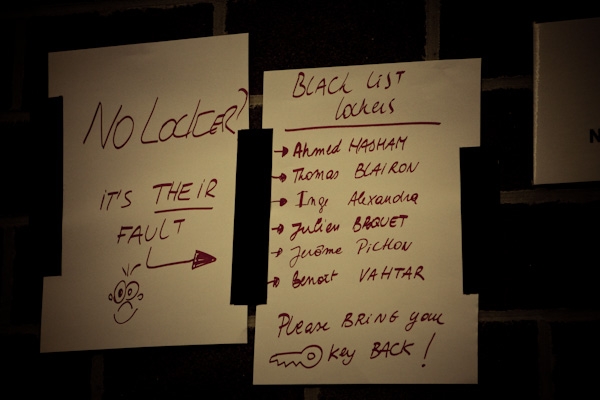 No Locker?
it's THEIR
FAULT
BLACK LIST
lockers
Ahmed HASHAM
Thomas BLAIRON
Inge Alexandra
Julien BAQUET
Jerôme PICHON
Benoit VAHTAR
Please BRING your
Key BACK !
N